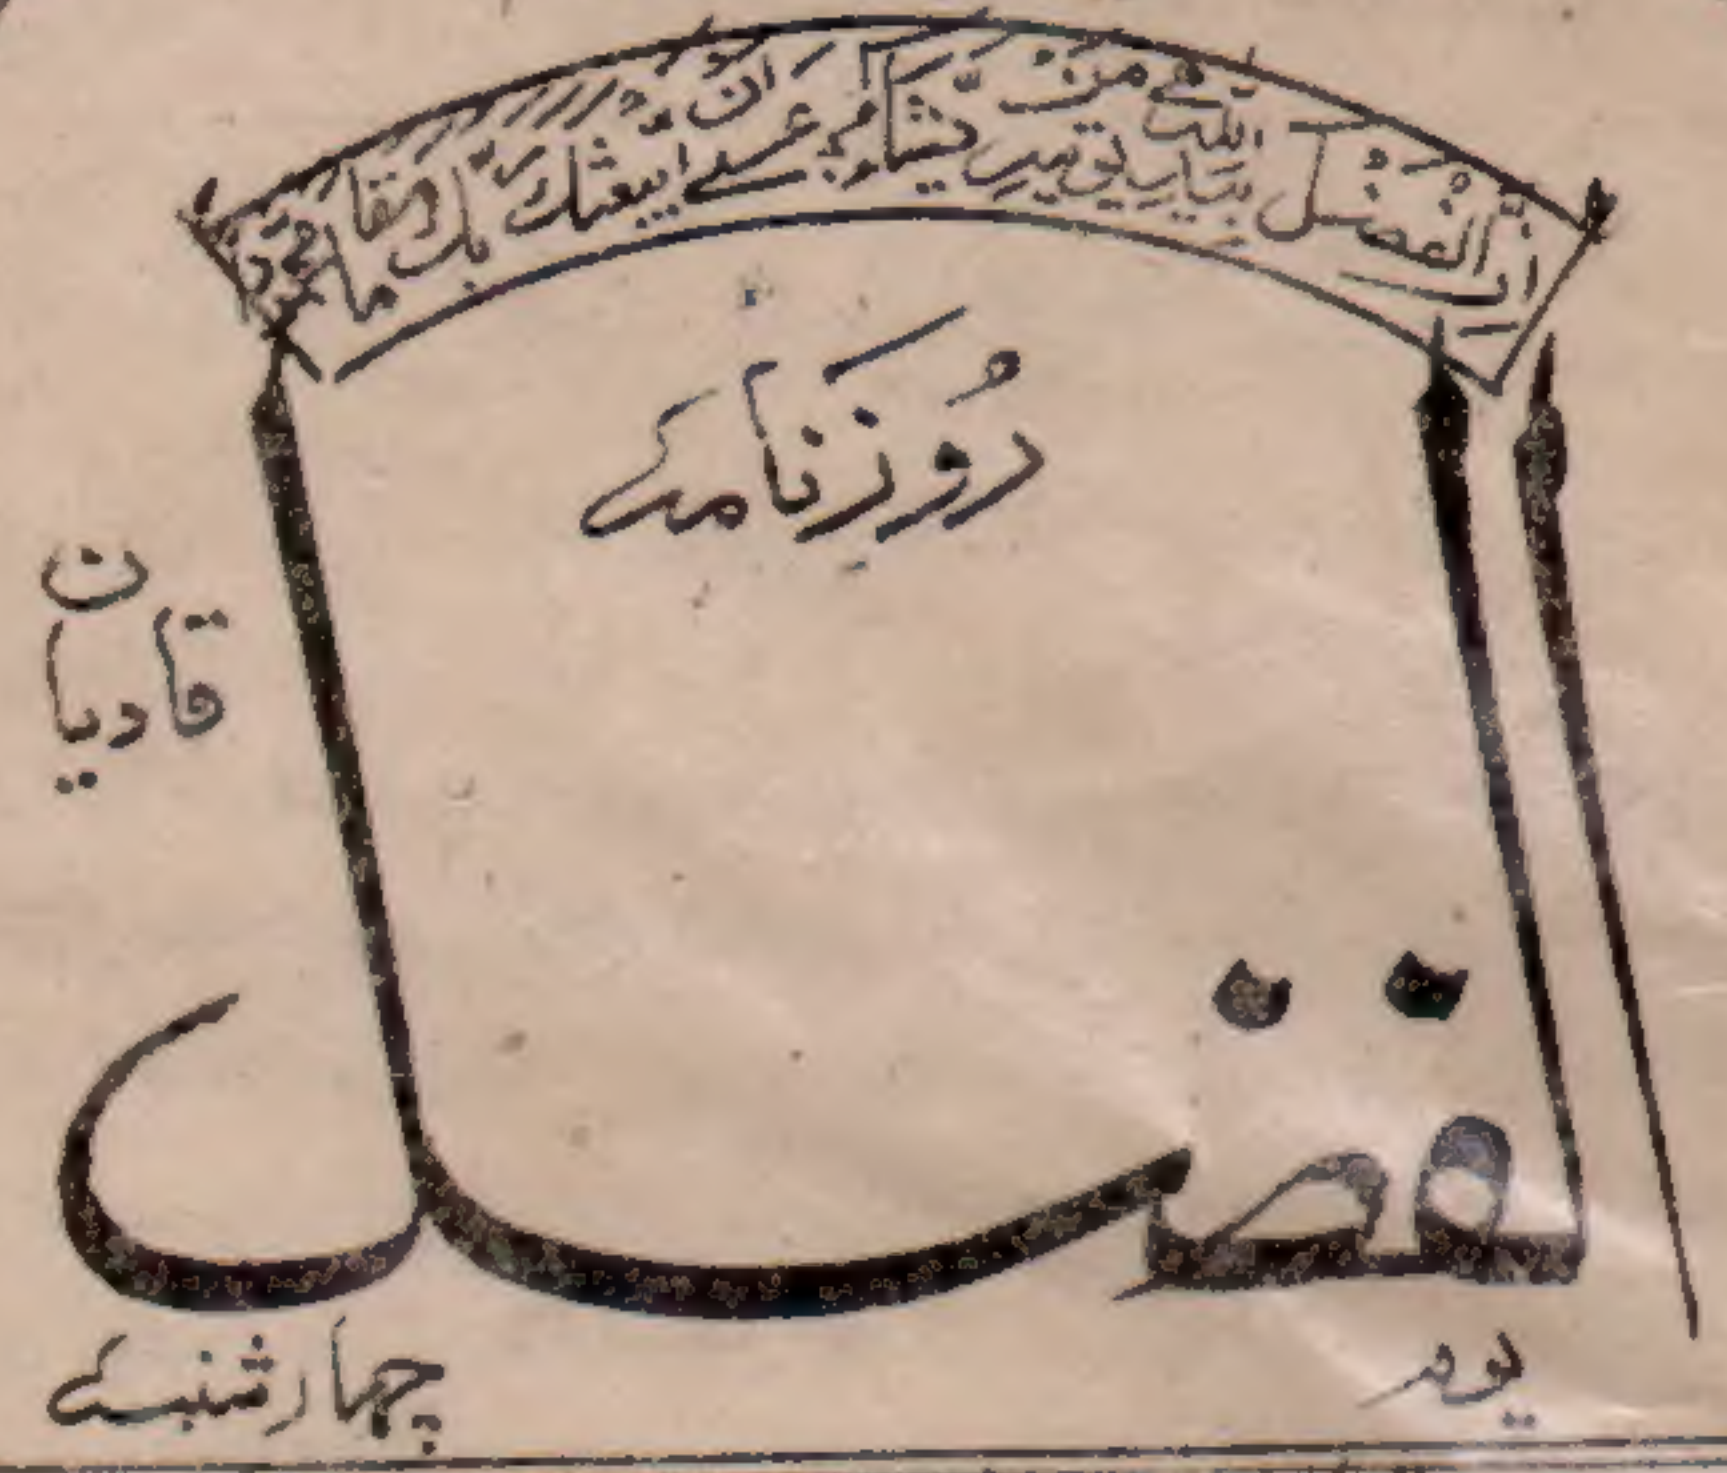 اِنَّ الْفَضْلَ بِیَدِ اللّٰہِ یُؤْتِیْہِ مَنْ یَّشَآءُ عَسٰۤی اَنْ یَّبْعَثَکَ رَبُّکَ مَقَامًا مَّحْمُوْدًا
رُوزنَامہ
الفضل
قادیان
یوم چہارشنبہ